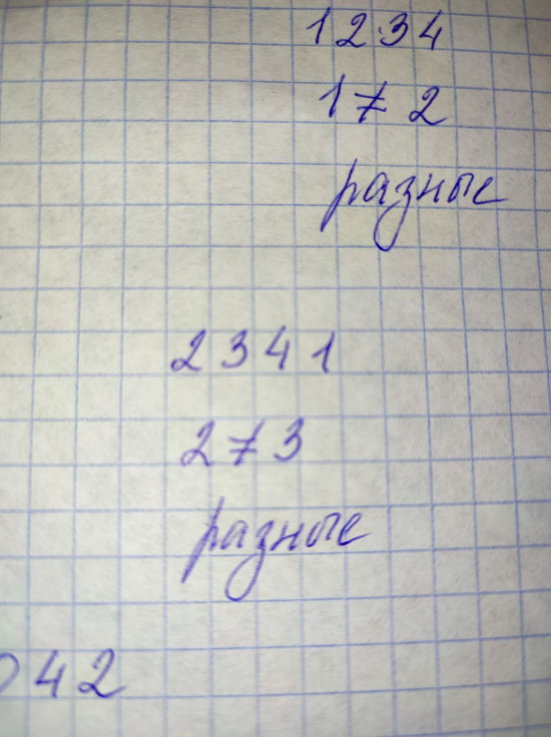 1234
1 ≠ 2
разные
2341
2 ≠ 3
разные
42